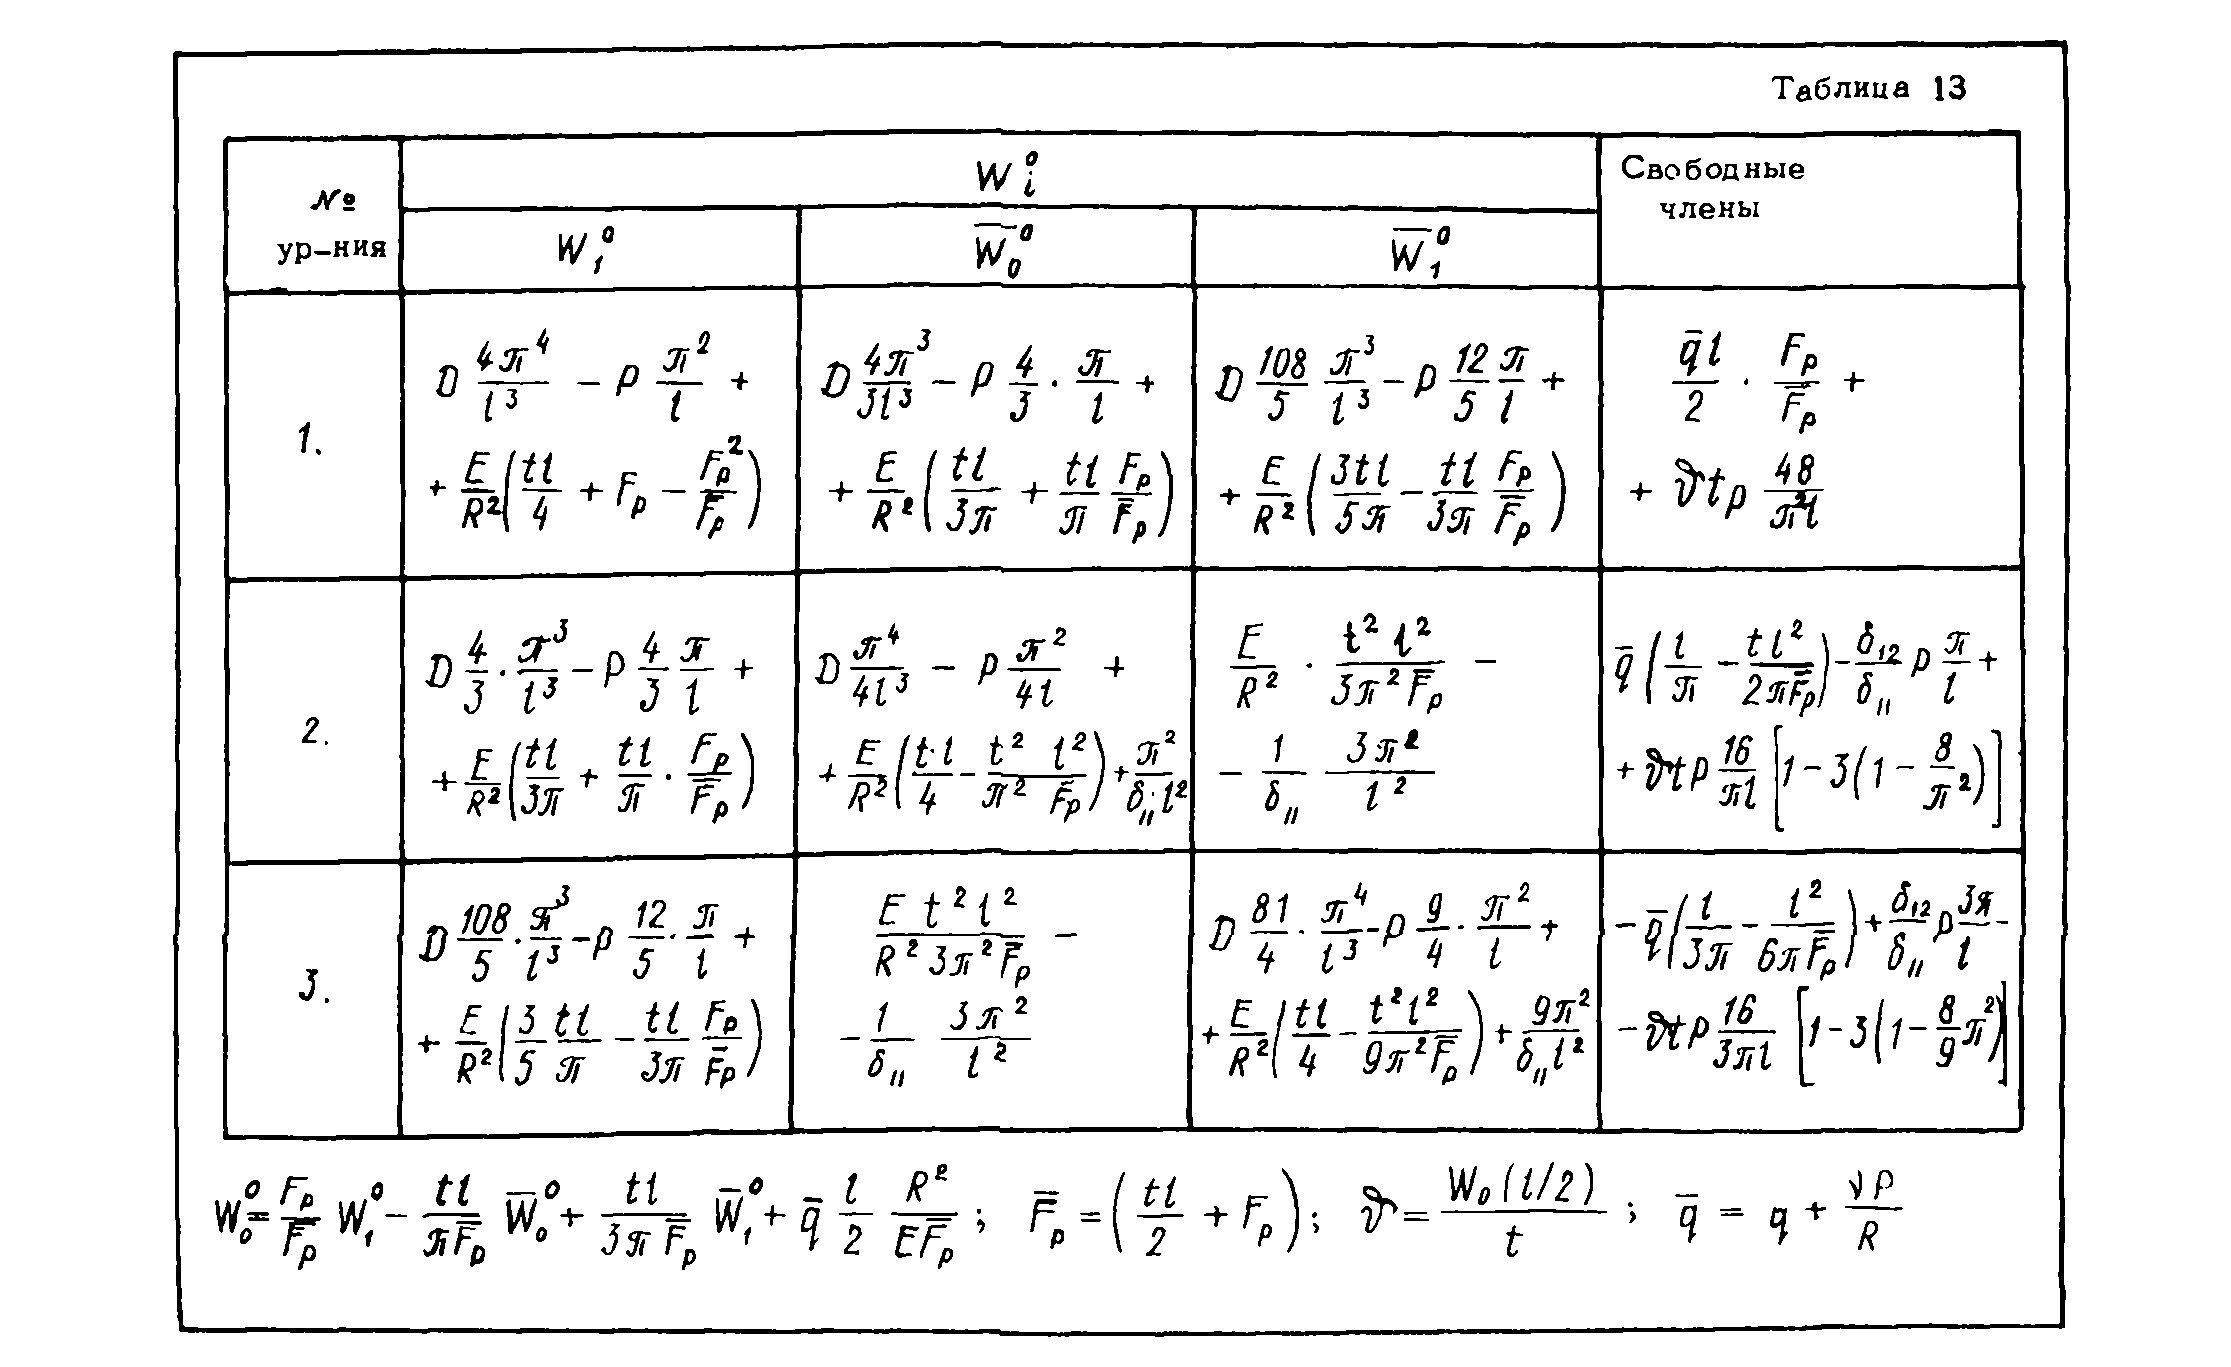 Таблица 13
№ ур-ния
W_i^0
Свободные члены
W_1^0
W̅_0^0
W̅_1^0
1.
D 4π^4/l^3 − P π^2/l +
+ E/R^2 (tl/4 + F_p − F_p^2/F̅_p)
D 4π^3/3l^3 − P 4/3 · π/l +
+ E/R^2 (tl/3π + tl/π F_p/F̅_p)
D 108/5 π^3/l^3 − P 12/5 π/l +
+ E/R^2 (3tl/5π − tl/3π F_p/F̅_p)
q̅l/2 · F_p/F̅_p +
+ ϑtp 48/π^2l
2.
D 4/3 · π^3/l^3 − P 4/3 π/l +
+ E/R^2 (tl/3π + tl/π · F_p/F̅_p)
D π^4/4l^3 − P π^2/4l +
+ E/R^2 (t·l/4 − t^2 l^2/π^2 F̅_p) + π^2/δ_11·l^2
E/R^2 · t^2 l^2/3π^2 F̅_p −
− 1/δ_11 3π^2/l^2
q̅ (l/π − tl^2/2πF̅_p) − δ_12/δ_11 P π/l +
+ ϑtp 16/πl [1−3(1−8/π^2)]
3.
D 108/5 · π^3/l^3 − P 12/5 · π/l +
+ E/R^2 (3/5 tl/π − tl/3π F_p/F̅_p)
E t^2 l^2/R^2 3π^2 F̅_p −
− 1/δ_11 3π^2/l^2
D 81/4 · π^4/l^3 − P 9/4 · π^2/l +
+ E/R^2 (tl/4 − t^2l^2/9π^2F̅_p) + 9π^2/δ_11l^2
− q̅ (l/3π − l^2/6πF̅_p) + δ_12/δ_11 P 3π/l −
− ϑtp 16/3πl [1−3(1−8/9 π^2)]
W_0^0 = F_p/F̅_p W_1^0 − tl/πF̅_p W̅_0^0 + tl/3πF̅_p W̅_1^0 + q̅ l/2 R^2/EF̅_p ; F̅_p = (tl/2 + F_p); ϑ = W_0(l/2)/t ; q̅ = q + νP/R